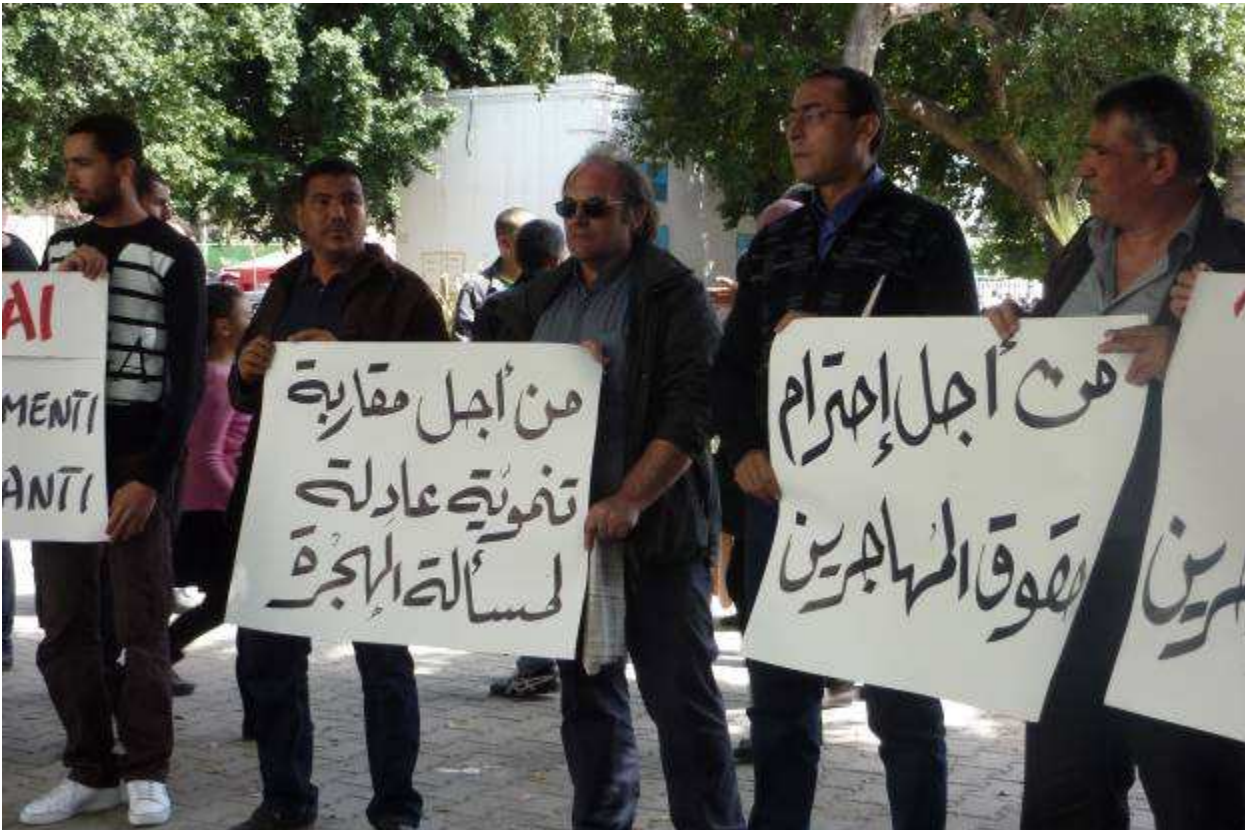 AI
MENTI
ANTI
من أجل مقاربة
تنمويّة عادلة
لمسألة الهجرة
من أجل إحترام
حقوق المهاجرين